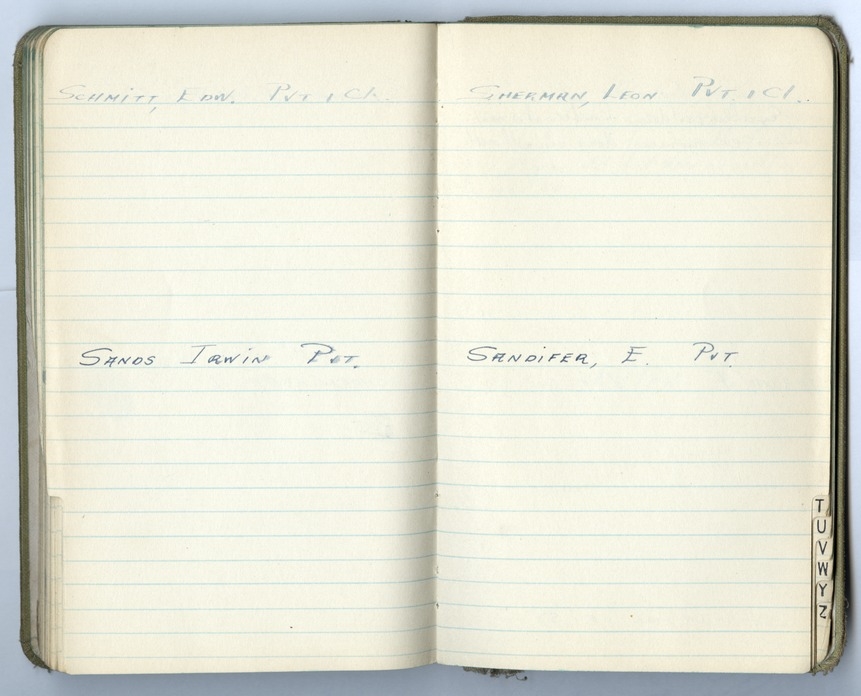 SCHMITT, EDW. PVT 1 CL.
SANDS IRWIN PVT.
SHERMAN, LEON PVT. 1 CL.
SANDIFER, E. PVT.
T
U
V
W
Y
Z